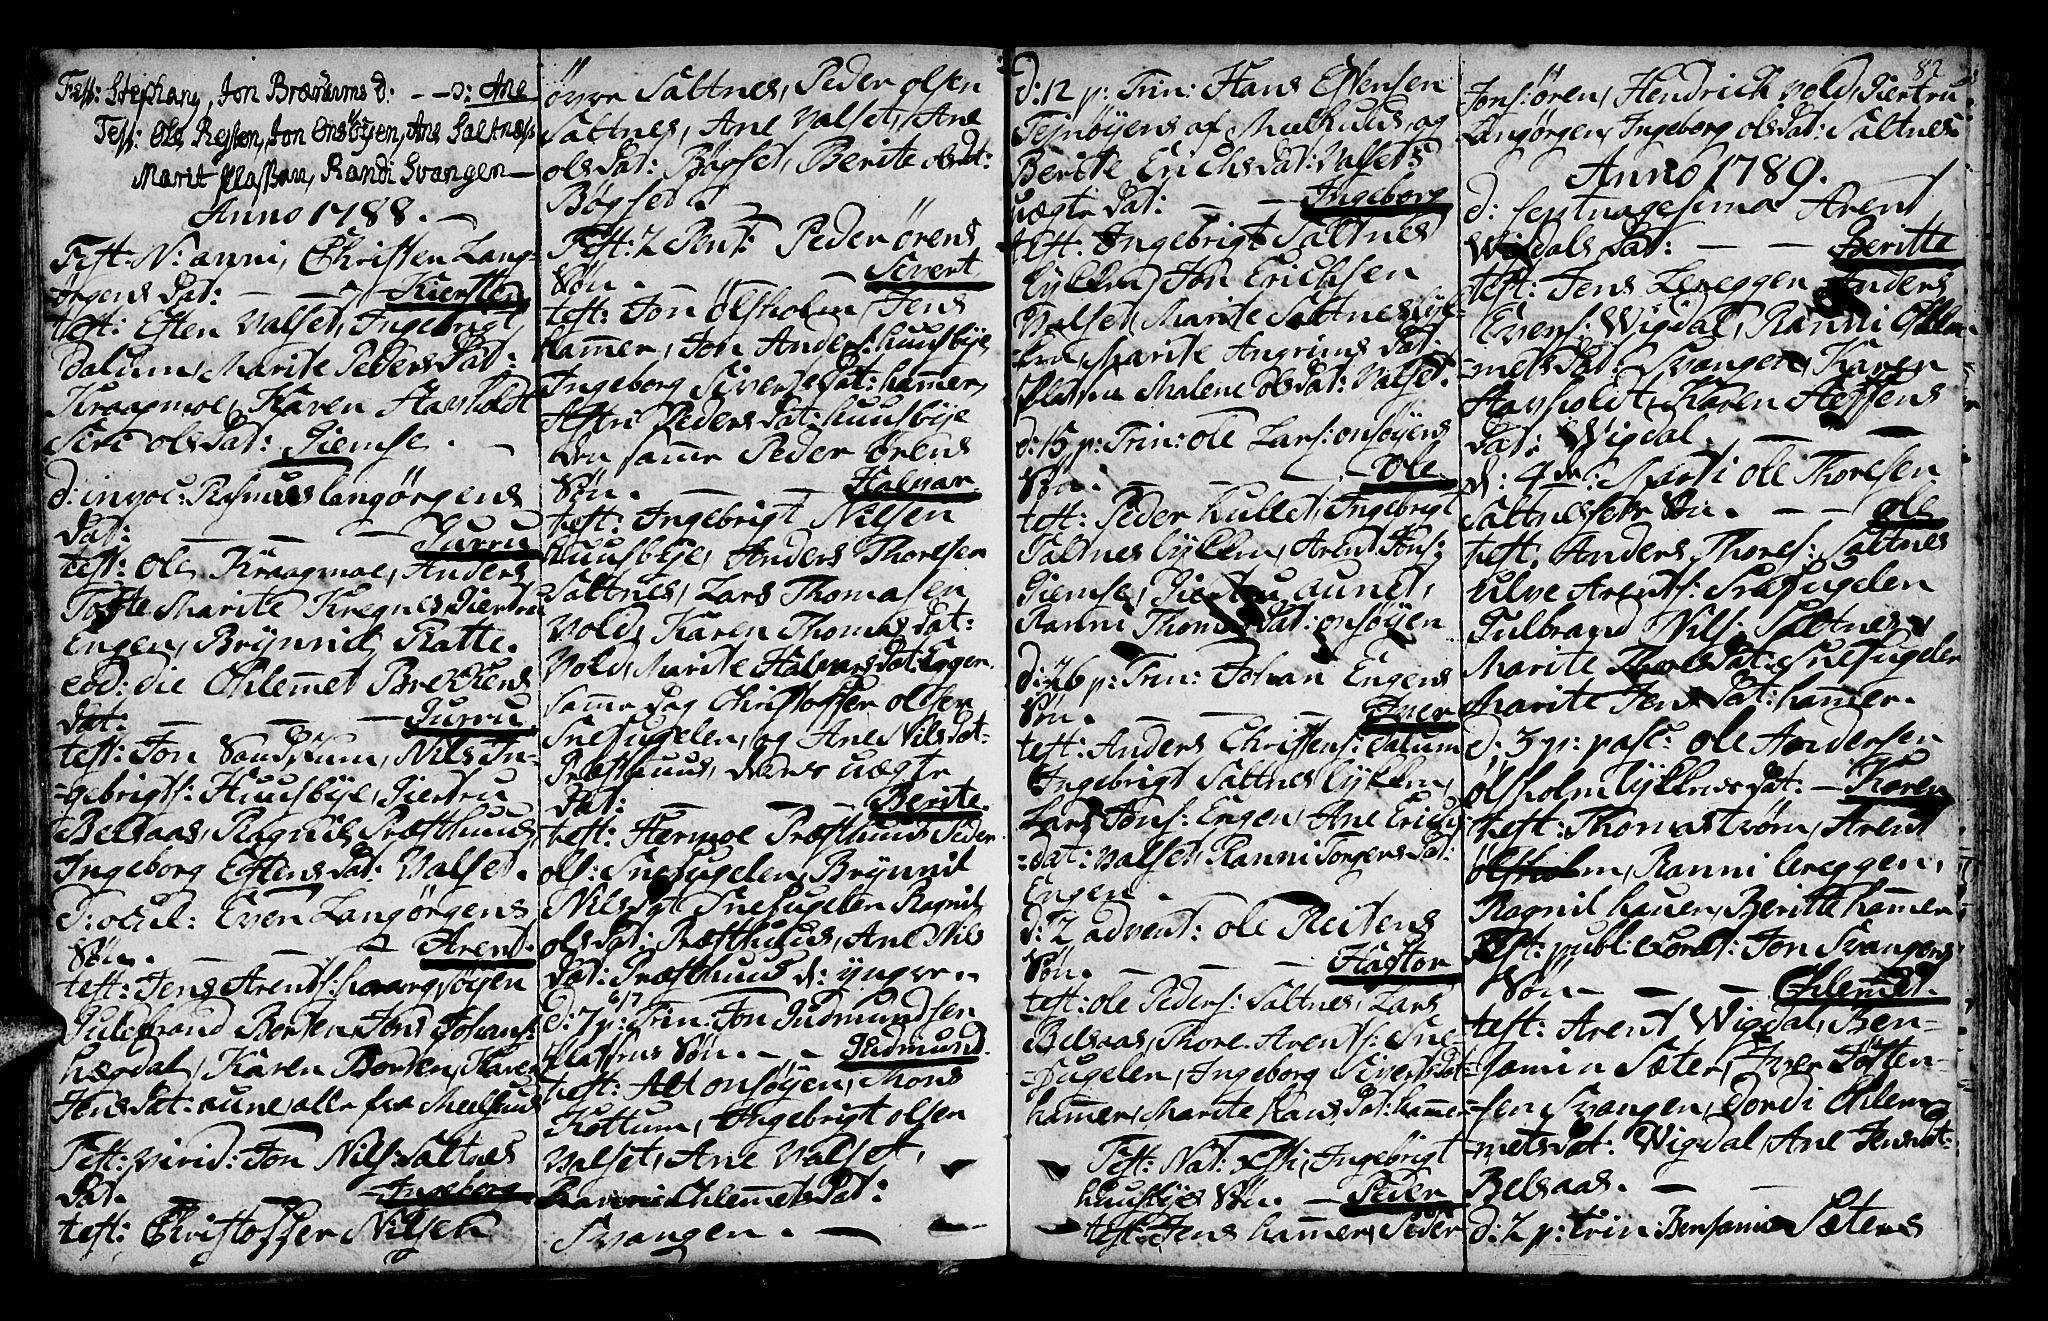 Fest: Stephany, Jon Brækkens d: — D: Ane
Test: Ole Resten, Jon Onsøyen, Ane Saltnes
Marit Plassan, Randi Svangen —
Anno 1788. —
Fest: N: anni, Christen Lang-
ørgens Dat: — — Kiersten
test: Esten Valset, Ingebrigt
Dalum, Marite PedersDat:
Kraagmoe, Karen Havholdt
Siri olsDat: Giemse. —
D: invoc: Rasmus Langørgens
Dat: — — — Gurru
test: ole Kraagmoe, Anders
Tofte Marite Kregnes, Giertru
Engen, Brynnild Ratte.
eod: die Ohlemet Brekkens
Dat: — — — Gurru
test: Jon Sandskum, Nils In-
=gebrigts: Huusbye, Giertru
Belsaas, Ragnil Præsthuus
Ingeborg EstensDat: Valset.
D: ocul: Even Langørgens
Søn. — — — Arent.
test: Jens Arents: Haargsøyen
Guldbrand Borten Jens Johans:
Hægdal, Karen Borten, Karen
JensDat: aune, alle fra Meelhuus
Fest: virid: Jon Nils: Saltnes
Dat. — Ingeborg
test: Christoffer Nilsen
øvre Saltnes, Peder olsen
Saltnes, Ane Valset, Ane
olsDat: Bøgset, Berite olsDt:
Bøgset. —
Fest: 2 Pent: Peder ørens
Søn. — — Sivert
test: Jon ølsholm, Jens
hamer, Jon Anders: huusbye
Ingeborg SivertsDat: hamer,
Astri PedersDat: huusbye
den samme Peder Ørens
Søn. — — Halvar.
test: Ingebrigt Nilsen
Huusbye, Anders Thoresen
Saltnes, Lars Thomasen
Vold, Karen ThomasDat:
Vold, Marite HalvarsDat: Eggen.
samme Dag Christoffer olsen
Snefugelen, og Ane NilsDat:
Præsthuus, deres uægte
Dat: — — Berite.
test: Hermoe Præsthuus Peder
ols: Snefugelen, Brynnil
NilsDt Snefugelen Ragnil
olsDat: Præsthuus, Ane Nils
Dat: Præsthuus d: yngre. —
6/7
D: 7 p: Trin: Jon Gudmundsen
Plassens Søn. — — Gudmund.
test: Alf onsøyen, Mons
Kottum, Ingebrigt olsen
Valset, Ane Valset,
Karen OhlemetsDat:
Svangen. —
D: 12 p: Trin: Hans Estensen
Teinøyens af Meelhuus, og
Berite ErichsDat: Valsets
uægte Dat: — — Ingeborg
test: Ingebrigt Saltnes
lykken, Jon Erichsen
Valset, Marite Saltneslyk-
ken, Marite AngrimsDat:
Platsen Malene olsDat: Valset.
D: 15 p: Trin: ole Lars: onsøyens
Søn. — — — Ole.
test: Peder hullet, Ingebrigt
Saltneslykken, Arent Jens:
Giemse, Giertru aunet,
Ranni ThomesDat: onsøyen
D: 26 p: Trin: Johan Engens
Søn. — — — Iver
test: Anders Christens: Dalum
Ingebrigt Saltneslykken,
Lars Jons: Engen, Ane Erichs
=Dat: Valset, Ranni JorgensDat:
Engen.
D: 2 advent: ole Reitens
Søn. — — — Hagtor
test: ole Peders: Saltnes, Lars
Belsaas, Thore Arents: Sne-
=fugelen, Ingeborg SivertsDat:
hamer, Marite HansDat: hamer
Fest: Nat: Xsti, Ingebrigt
huusbyes Søn. — Peder
test: Jens hamer, Peder
82
Jons: ören, Hendrich Vold, Giertru
Langørgen, Ingeborg olsDat: Saltnes
Anno 1789.
D: septuagesima Arent
Wigdals Dat: — — Beritte
test: Jens Lereggen Anders
Evens: Wigdal, Ranni Ohlem-
=metsDat: Svangen, Karen
Havholdt, Karen Steffens
Dat: Wigdal. — —
D: 4de Marti ole Thoresen
Saltnes Søn. — — ole
test: Anders Thores: Saltnes
Ulve Arents: Snefugelen
Gulbrand Nils: Saltnes,
Marite ThoresDat: Snefugelen
Marite JensDat: hamer.
D: 3 p: pasc: ole Andersen
ølsholmlykkens Dat: — Karen
test: Thomas trøen, Arent
ølsholm, Ranni lereggen,
Ragnil hauen, Beritte hamer
Fest: publ: Extrd: Jon Svangens
Søn — — — Ohlemet.
test: Arent Wigdal, Ben-
=jamin Sæter, Iver Josten-
=sen Svangen, Dordi Ohlem-
metsDat: Wigdal, Ane JensDat:
Belsaas. — —
D: 2 p: trin: Benjamin Sæters